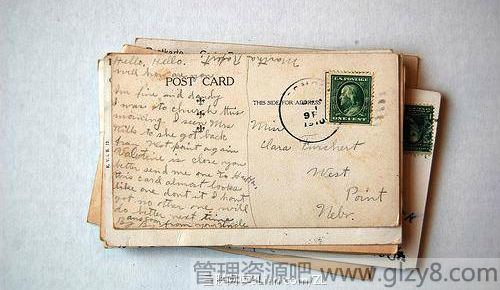 POST CARD
THIS SIDE FOR ADDRESS
U.S. POSTAGE
ONE CENT
Hello. Hello.
well how are you
Im fine and dandy
I was to church this
morning. I seen Mrs
Mills to she got back
from West point again
Valentine is close you
better send me one to
this card almost looks
like one dont it I havt
got no other one will
do better next time
Miss
Clara
West
Point
Nebr.
管理资源吧 www.glzy8.com